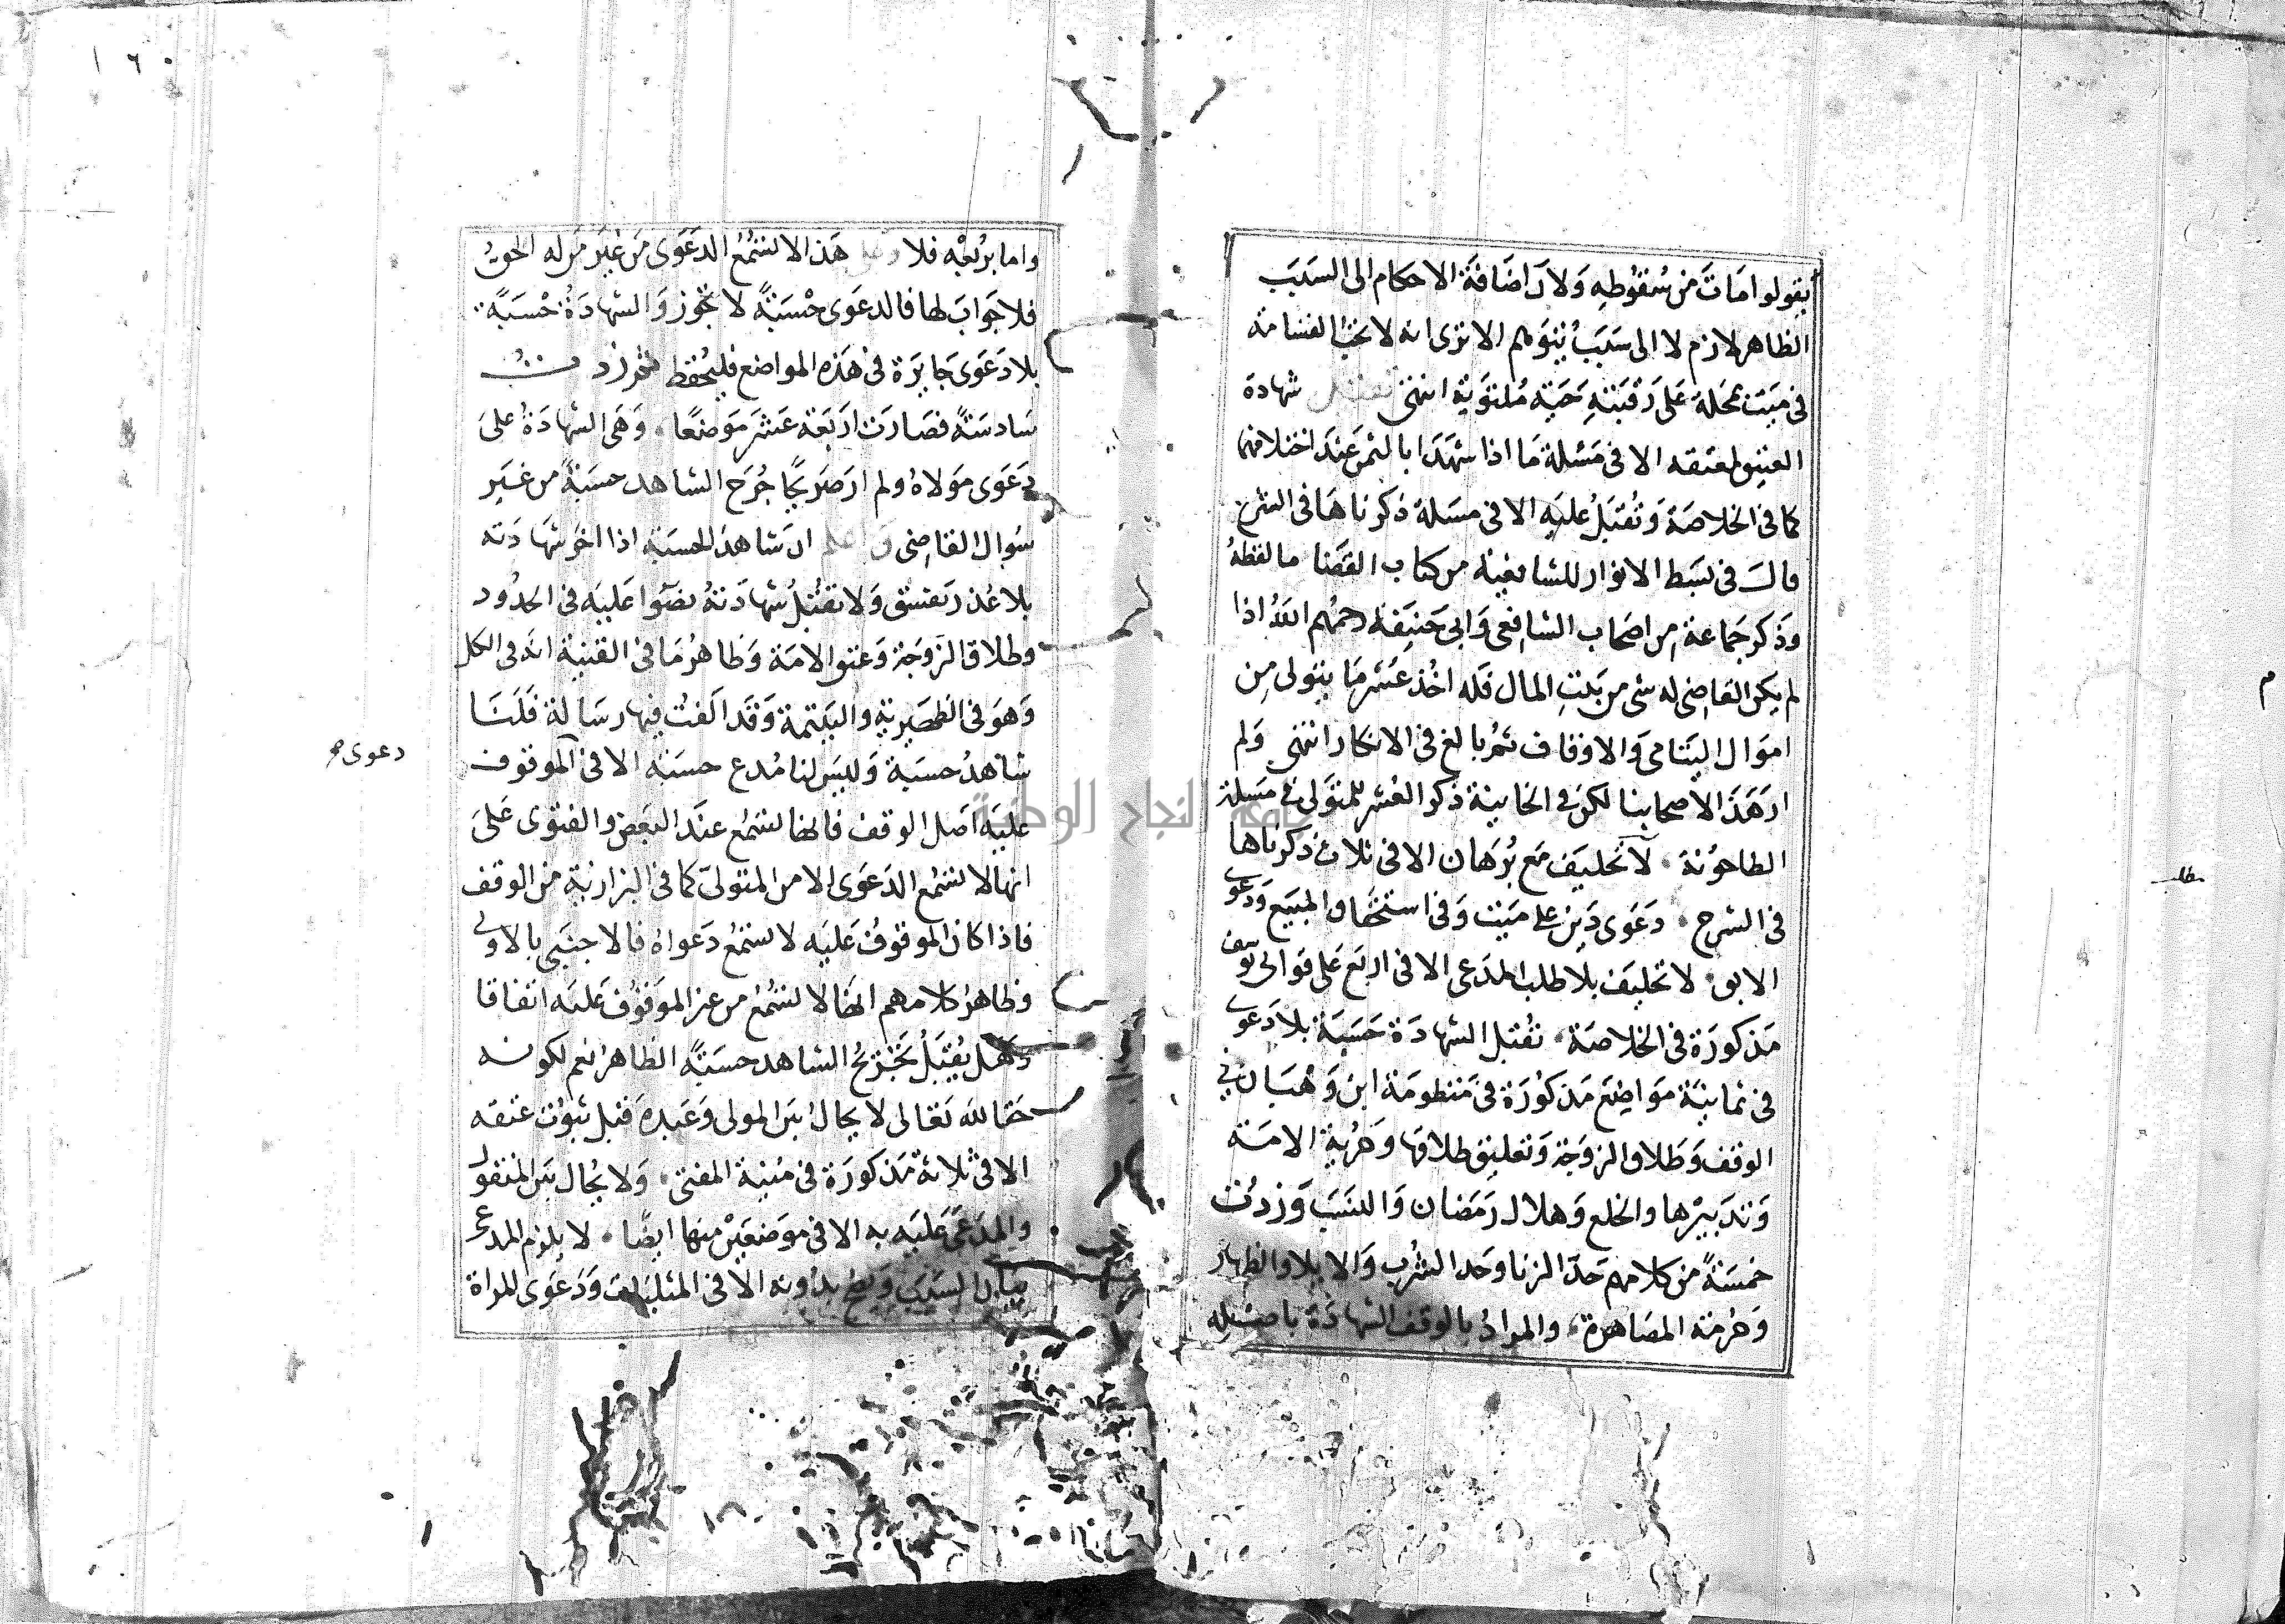 يقولوا مات من سقوطه ولان اضافة الاحكام الى السبب
الظاهر لازم لا الى سبب يتوهم الا ترى انه لا تجب القسامة
في ميت بمحلة على رقبته حية ملتوية انتهى تقبل شهادة
العتيق لمعتقه الا في مسئلة ما اذا شهدا بالثمن عند اختلافهما
كما في الخلاصة وتقبل عليه الا في مسئلة ذكرناها في الشرح
قال في بسط الانوار للشافعية من كتاب القضا ما لفظه
وذكر جماعة من اصحاب الشافعي وابي حنيفة رحمهم الله اذا
لم يكن القاضي له شي من بيت المال فله اخذ عشر ما يتولى من
اموال اليتامى والاوقاف ثم بالغ في الانكار انتهى ولم
ار هذا لاصحابنا لكن في الخانية ذكر العشر للمتولي في مسئلة
الطاحونة لا تحليف مع برهان الا في ثلاث ذكرناها
في الشرح دعوى دين على ميت وفي استحقاق المبيع ودعوى
الابق لا تحليف بلا طلب المدعى الا في اربع على قول ابي يوسف
مذكورة في الخلاصة تقبل الشهادة حسبة بلا دعوى
في ثمانية مواضع مذكورة في منظومة ابن وهبان في
الوقف وطلاق الزوجة وتعليق طلاقها وحرية الامة
وتدبيرها والخلع وهلال رمضان والنسب وزدت
خمسة من كلامهم حد الزنا وحد الشرب والايلا والظهار
وحرمة المصاهرة والمراد بالوقف الشهادة باصله
مطلب
م
١٦٠
واما بريعه فلا وعلى هذا لا تسمع الدعوى من غير من له الحق
فلا جواب لها فالدعوى حسبة لا تجوز والشهادة حسبة
بلا دعوى جايزة في هذه المواضع فليحفظ ثم زدت
سادسة فصارت اربعة عشر موضعا وهي الشهادة على
دعوى مولاه ولم ار صريحا جرح الشاهد حسبة من غير
سوال القاضي واعلم ان شاهد الحسبة اذا اخر شهادته
بلا عذر يفسق ولا تقبل شهادته نصوا عليه في الحدود
وطلاق الزوجة وعتق الامة وظاهر ما في القنية انه في الكل
وهو في الظهيرية واليتيمة وقد الفت فيها رسالة فلنا
شاهد حسبة وليس لنا مدع حسبة الا في الموقوف
عليه اصل الوقف فانها تسمع عند البعض والفتوى على
انها لا تسمع الدعوى الا من المتولى كما في البزازية من الوقف
فاذا كان الموقوف عليه لا تسمع دعواه فالاجنبي بالاولى
وظاهر كلامهم انها لا تسمع من غير الموقوف عليه اتفاقا
وهل يقبل تجريح الشاهد حسبة الظاهر نعم لكونه
حقا لله تعالى لا يحال بين المولى وعبده قبل ثبوت عتقه
الا في ثلاثة مذكورة في منية المفتى ولا يحال بين المنقول
والمدعى عليه به الا في موضعين منها ايضا لا يلزم المدعى
بيان السبب وتصح بدونه الا في المثليات ودعوى المراة
دعوى
جامعة النجاح الوطنية